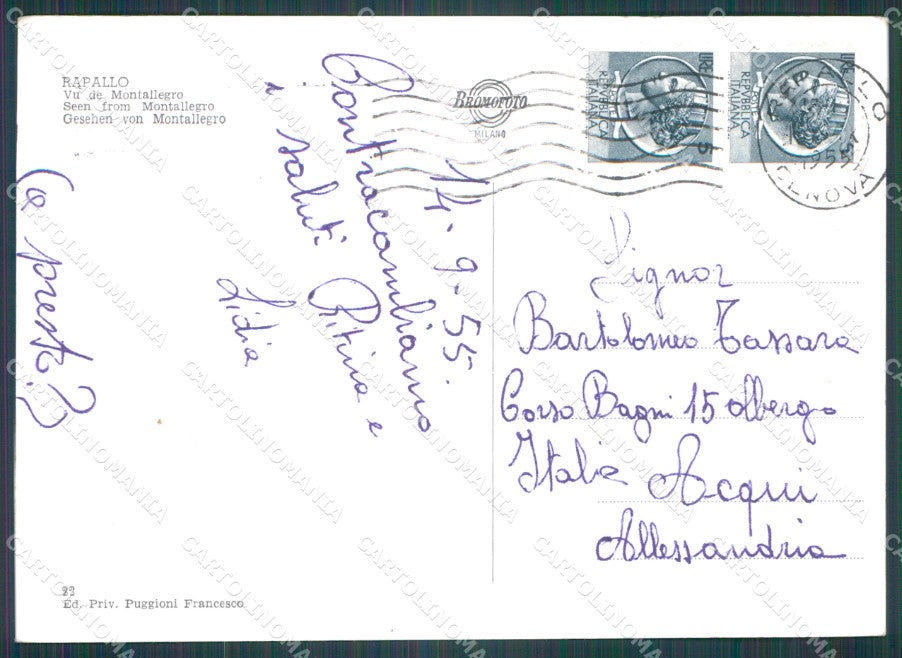 RAPALLO
Vu de Montallegro
Seen from Montallegro
Gesehen von Montallegro
BROMOFOTO
MILANO
REPUBBLICA
ITALIANA
LIRE 5
REPUBBLICA
ITALIANA
LIRE
RAPALLO
1955
GENOVA
14. 9. 55.
Contracambiamo
i saluti Ritina e
Lidia
(a presto?)
Signor
Bartolomeo Tassara
Corso Bagni 15 Albergo
Italia Acqui
Allessandria
22
Ed. Priv. Puggioni Francesco
CARTOLINOMANIA